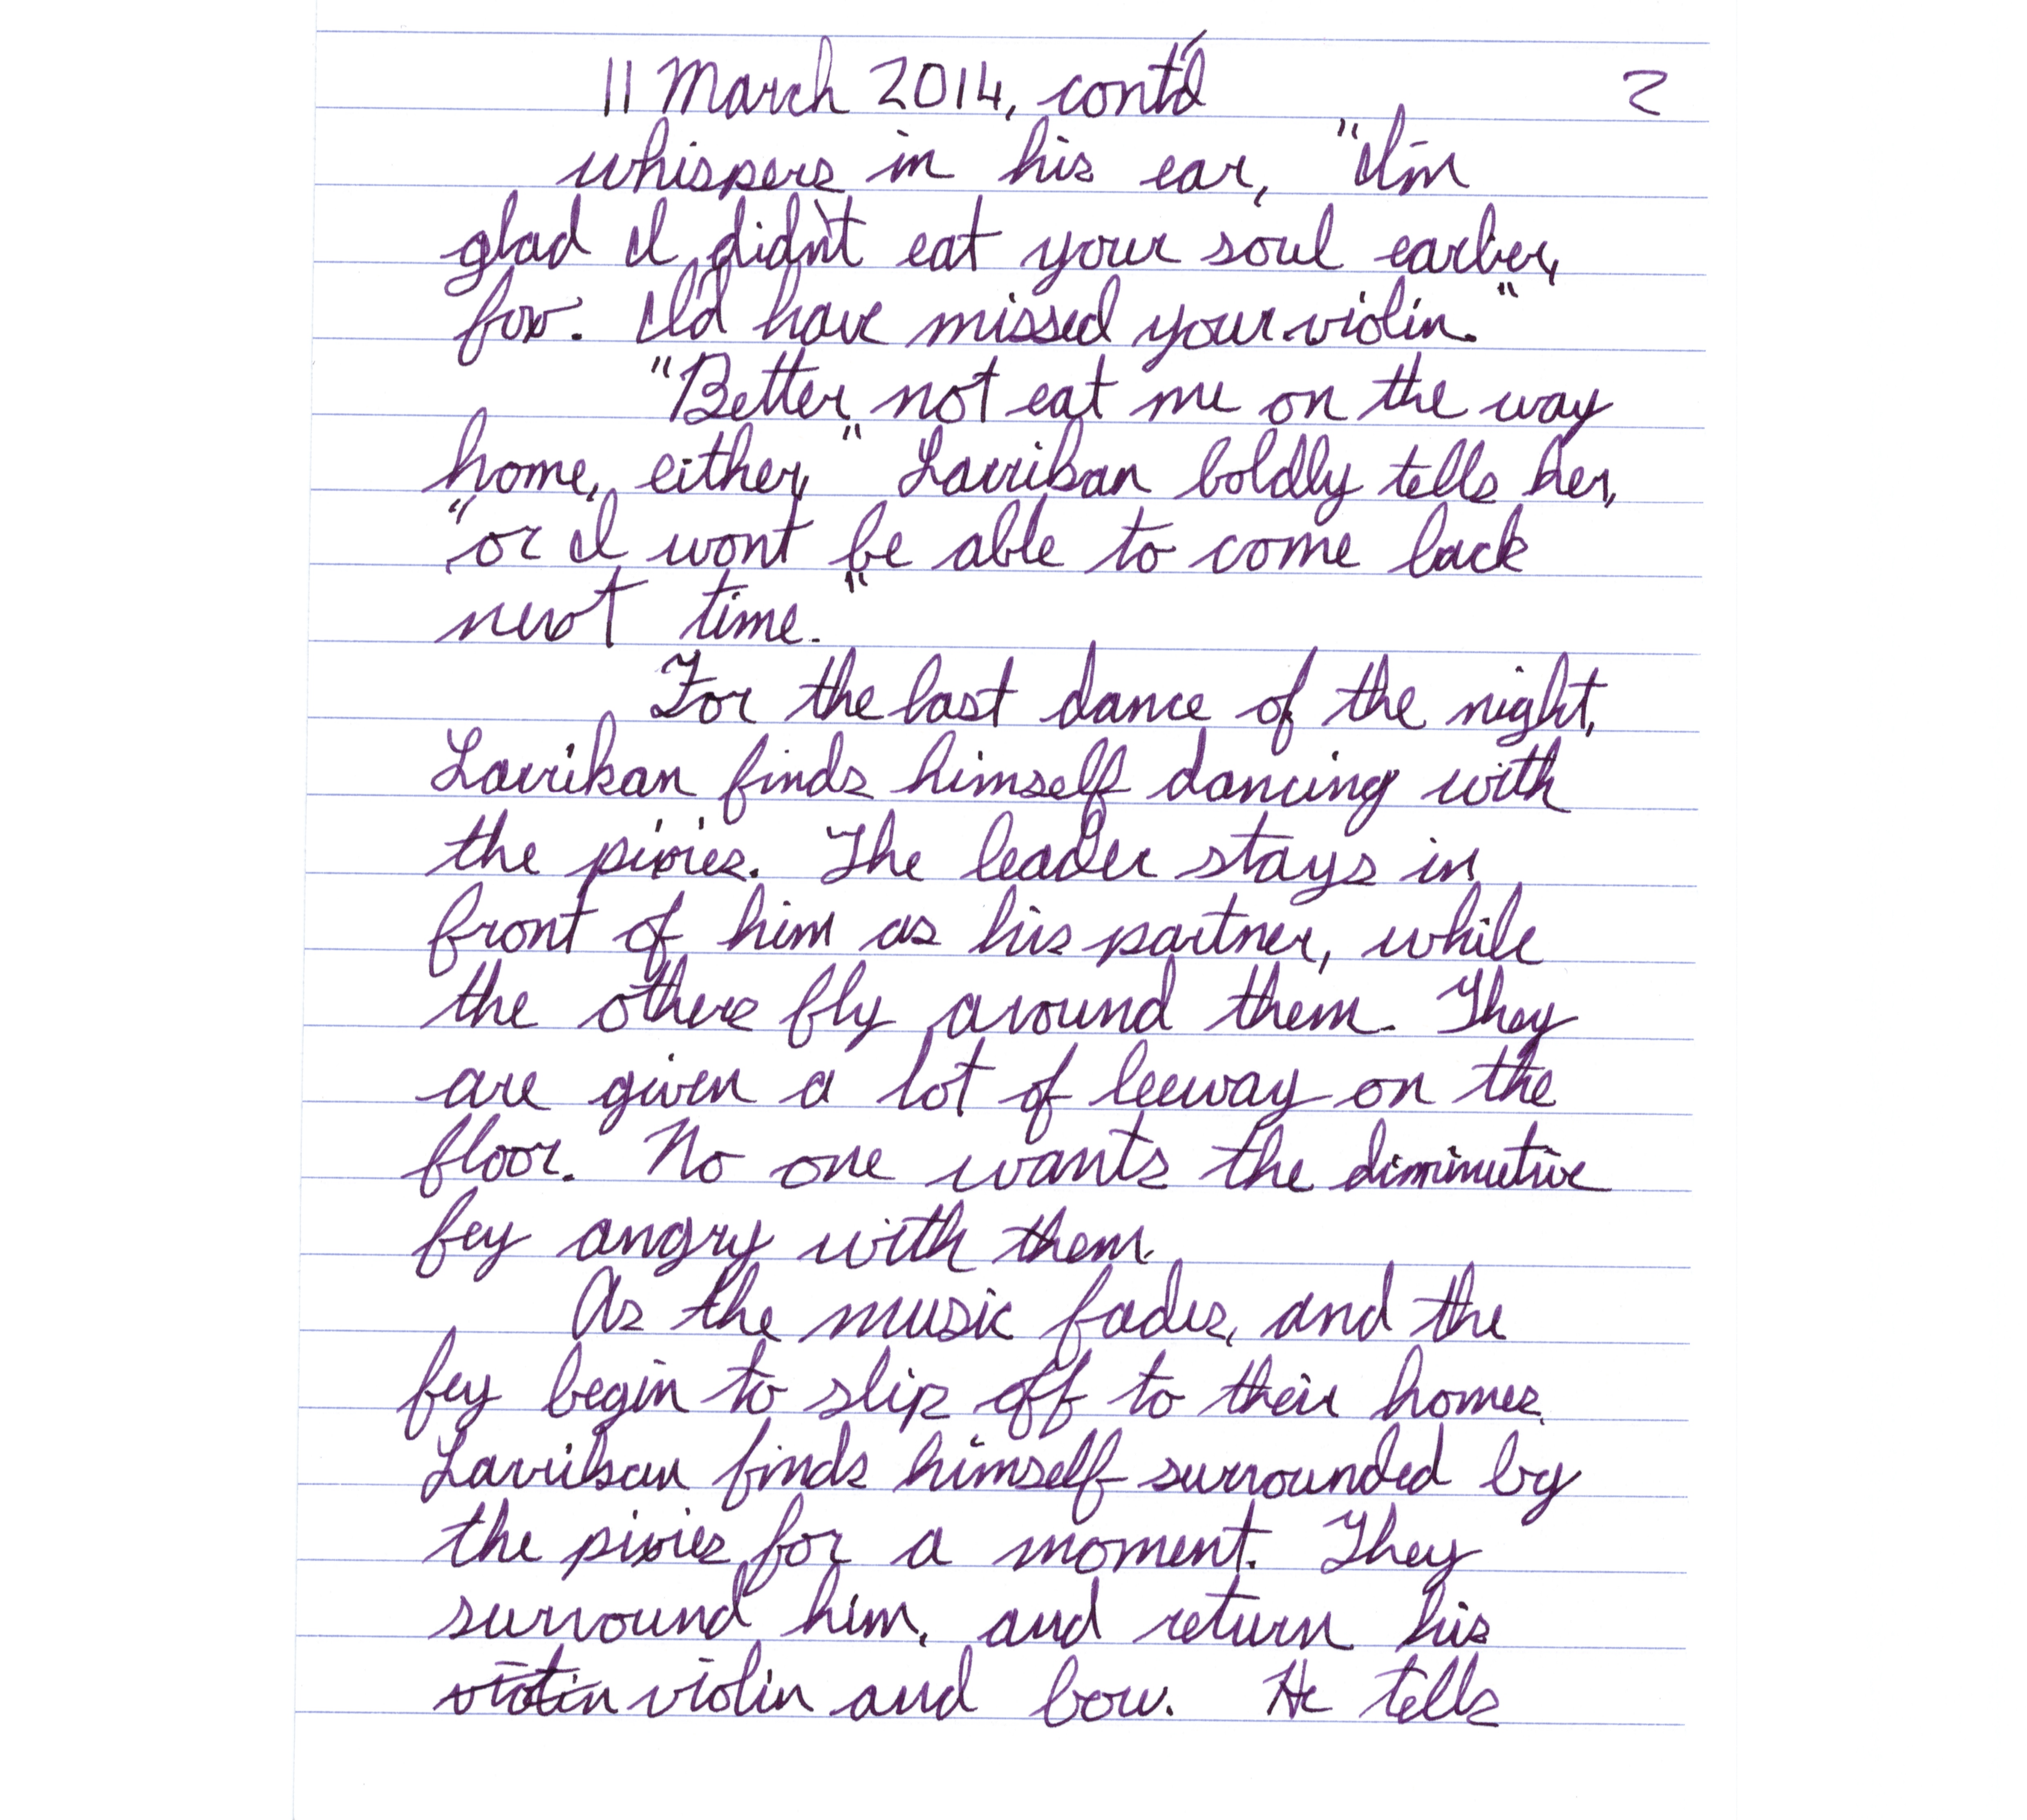 11 March 2014, cont'd 2
whispers in his ear, "I'm
glad I didn't eat your soul earlier,
fox. I'd have missed your violin."
"Better not eat me on the way
home, either," Lavrikan boldly tells her,
"or I won't be able to come back
next time."
For the last dance of the night,
Lavrikan finds himself dancing with
the pixies. The leader stays in
front of him as his partner, while
the others fly around them. They
are given a lot of leeway on the
floor. No one wants the diminutive
fey angry with them.
As the music fades, and the
fey begin to slip off to their homes,
Lavrikan finds himself surrounded by
the pixies for a moment. They
surround him, and return his
violin violin and bow. He tells